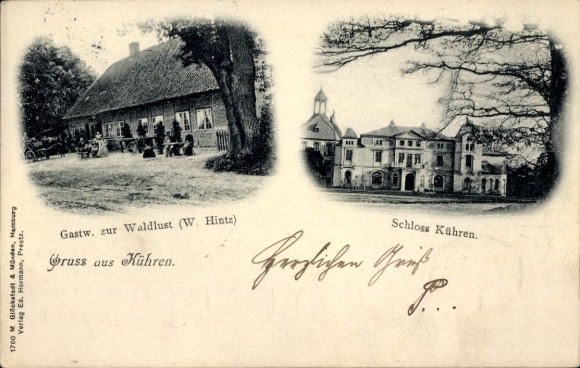 Gastw. zur Waldlust (W. Hintz)
Schloss Kühren.
Gruss aus Kühren.
Herzlichen Gruß
P...
1760 M Glückstadt & Münden, Hamburg
Verlag Ed. Hormann, Preetz.